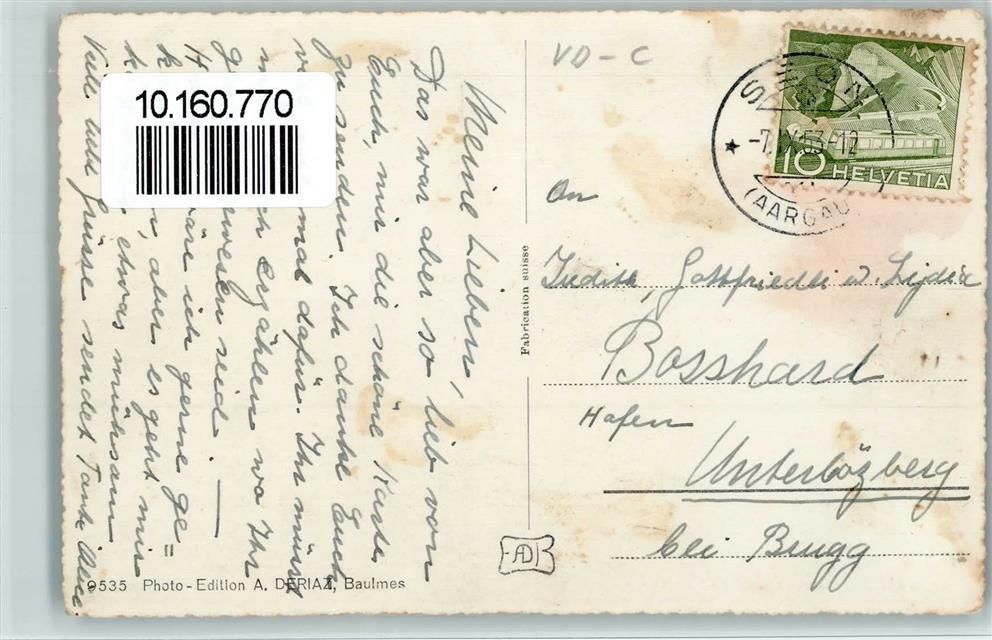 Meine Lieben,
Das war aber so lieb von
Euch, mir die schöne Karte
zu senden. Ich danke Euch
mal dafür. Ihr müsst
erzählen wo Ihr
gewesen seid. —
wäre ich gerne ge=
aber es geht mir
etwas mühsam
Viele liebe Grüsse sendet Tante
10.160.770
9535 Photo-Edition A. DERIAZ, Baulmes
Fabrication suisse
AD
VD-C
SEON
-7.IX.53-12
(AARGAU)
10 HELVETIA
An
Judith, Gottfriedli u. Lydia
Bosshard
Hafen
Unterbözberg
bei Brugg